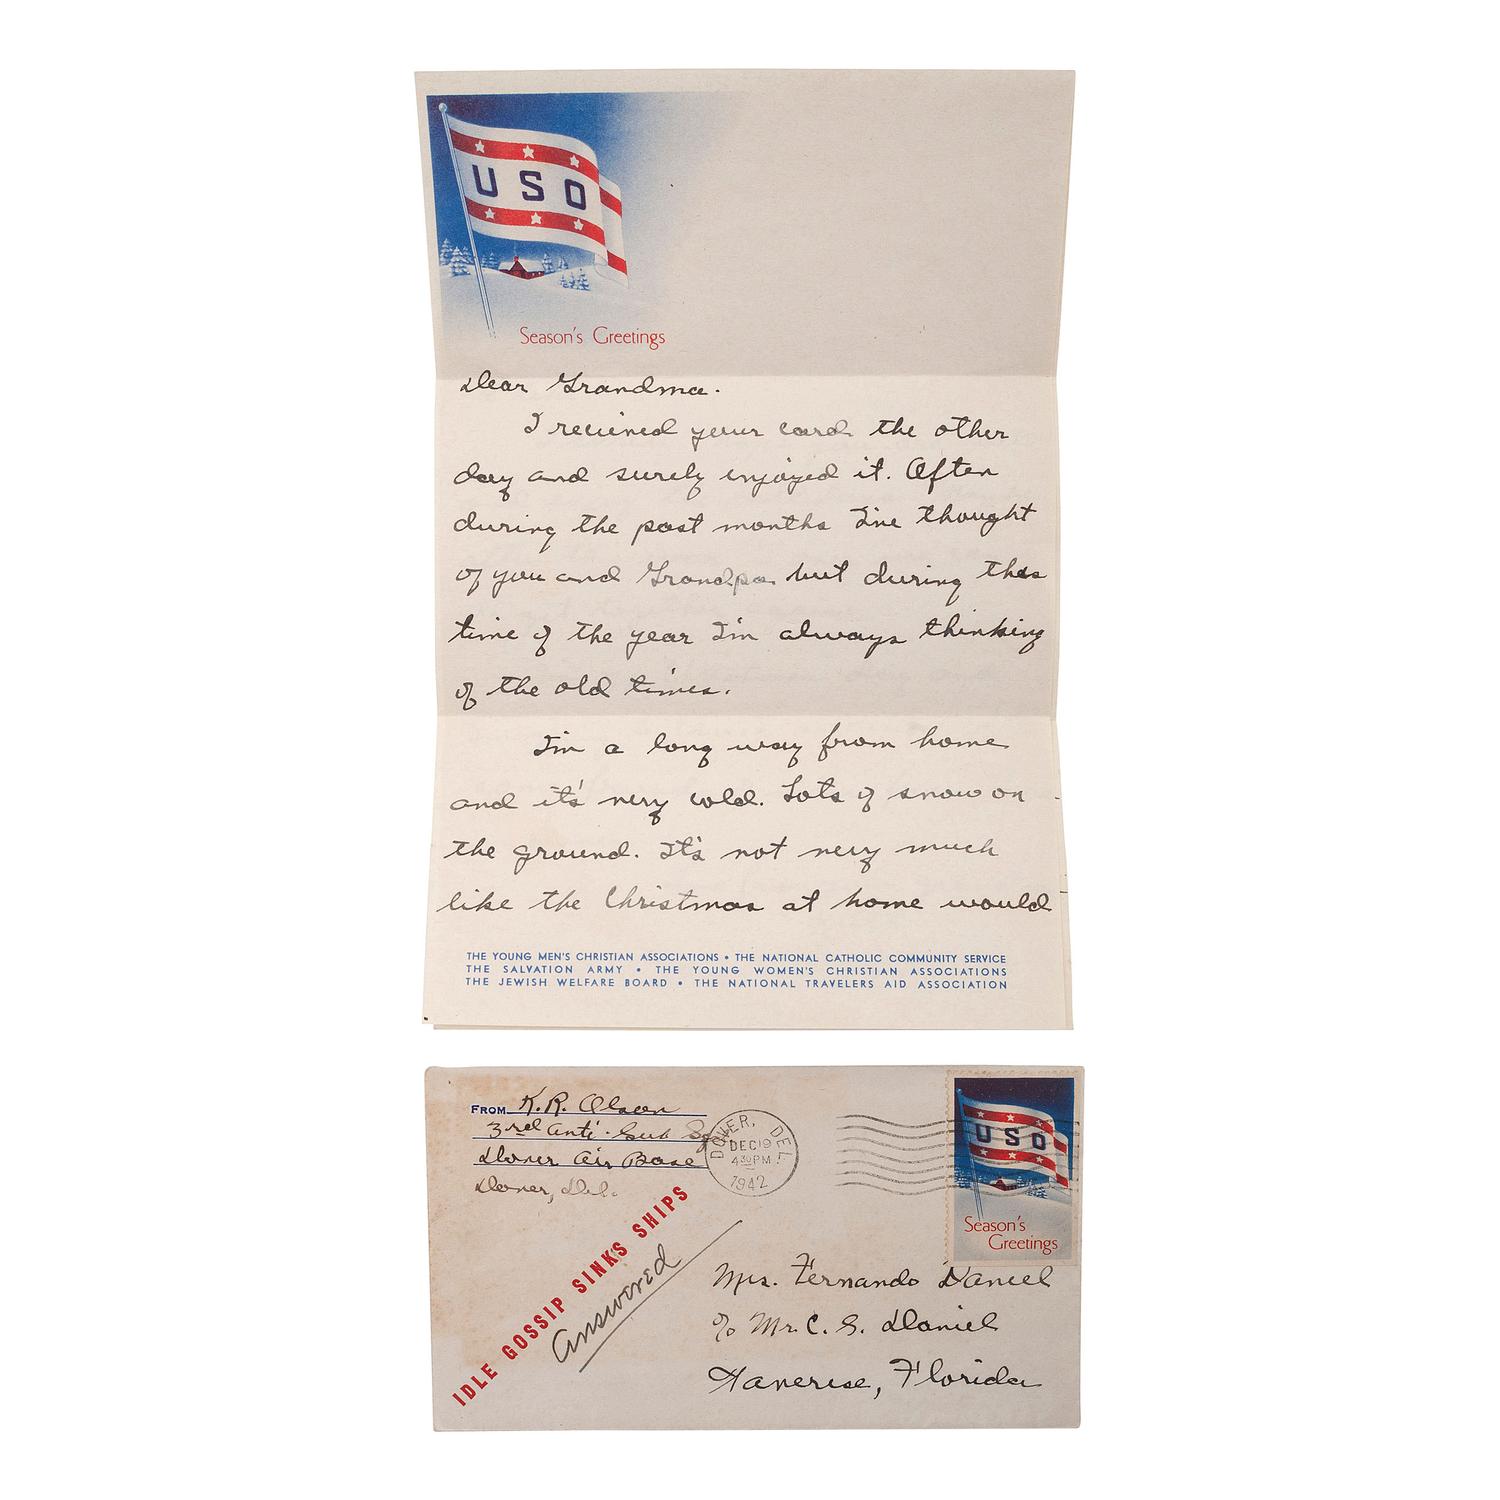 USO
Season's Greetings
Dear Grandma.
I received your card the other
day and surely enjoyed it. Often
during the past months I've thought
of you and Grandpa but during this
time of the year I'm always thinking
of the old times.
I'm a long way from home
and it's very cold. Lots of snow on
the ground. It's not very much
like the Christmas at home would
THE YOUNG MEN'S CHRISTIAN ASSOCIATIONS • THE NATIONAL CATHOLIC COMMUNITY SERVICE
THE SALVATION ARMY • THE YOUNG WOMEN'S CHRISTIAN ASSOCIATIONS
THE JEWISH WELFARE BOARD • THE NATIONAL TRAVELERS AID ASSOCIATION
FROM K.R. Olson
3rd Anti-Sub Sq
Dover Air Base
Dover, Del.
DOVER, DEL
DEC 19
4 30 PM
1942
USO
Season's
Greetings
IDLE GOSSIP SINKS SHIPS
Answered
Mrs. Fernando Daniel
c/o Mr. C. S. Daniel
Florida